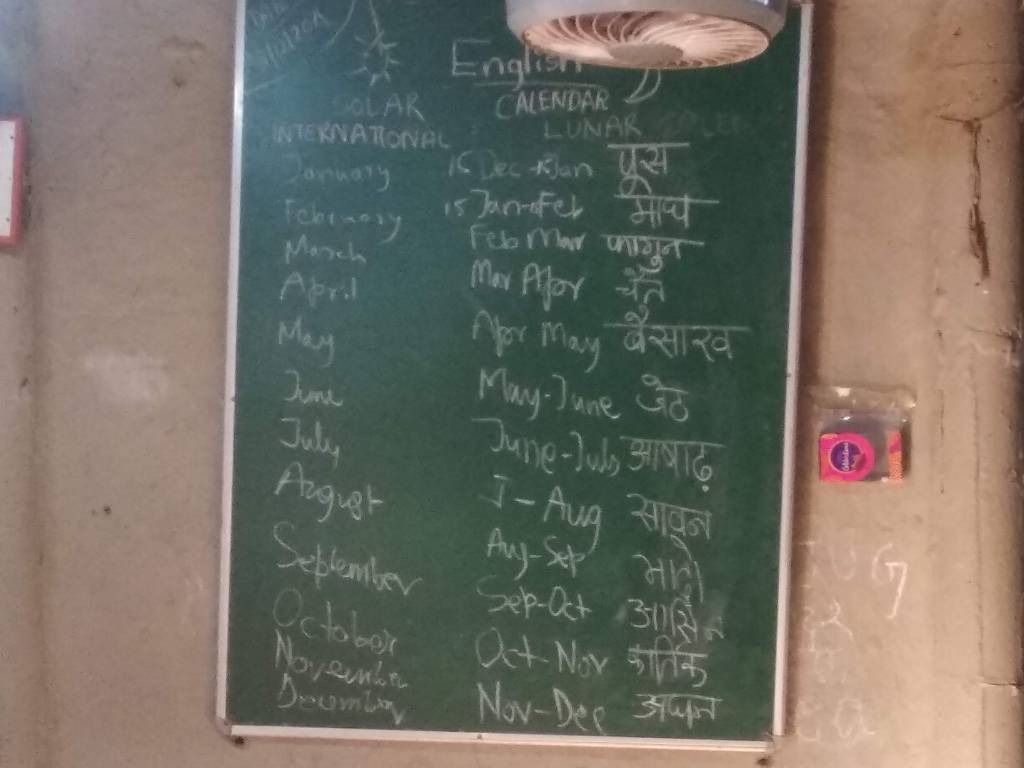 English
SOLAR CALENDAR
INTERNATIONAL LUNAR
January 15 Dec - 15 Jan पूस
February 15 Jan - Feb माघ
March Feb Mar फागुन
April Mar Apr चैत
May Apr May बैसाख
June May - June जेठ
July June - July आषाढ़
August J - Aug सावन
September Aug - Sep भादो
Octobor Sep - Oct आसिन
November Oct - Nov कार्तिक
December Nov - Dec अघन